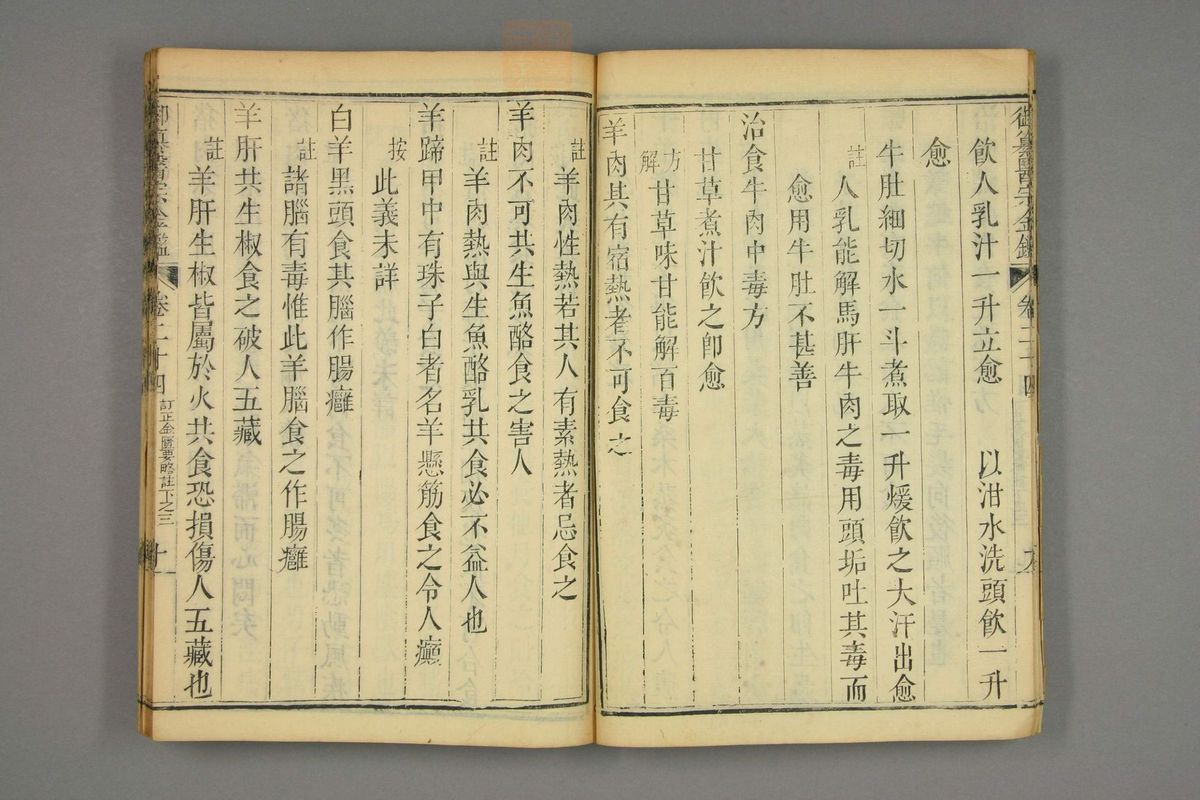 御纂醫宗金鑑 卷二十四
飲人乳汁一升立愈 以泔水洗頭飲一升
愈
牛肚細切水一斗煮取一升煖飲之大汗出愈
註 人乳能解馬肝牛肉之毒用頭垢吐其毒而
愈用牛肚不甚善
治食牛肉中毒方
甘草煮汁飲之卽愈
方解 甘草味甘能解百毒
羊肉其有宿熱者不可食之
註 羊肉性熱若其人有素熱者忌食之
羊肉不可共生魚酪食之害人
註 羊肉熱與生魚酪乳共食必不益人也
羊蹄甲中有珠子白者名羊懸筋食之令人癲
按 此義未詳
白羊黑頭食其腦作腸癰
註 諸腦有毒惟此羊腦食之作腸癰
羊肝共生椒食之破人五藏
註 羊肝生椒皆屬於火共食恐損傷人五藏也
御纂醫宗金鑑 卷二十四 訂正金匱要略註下之三 十